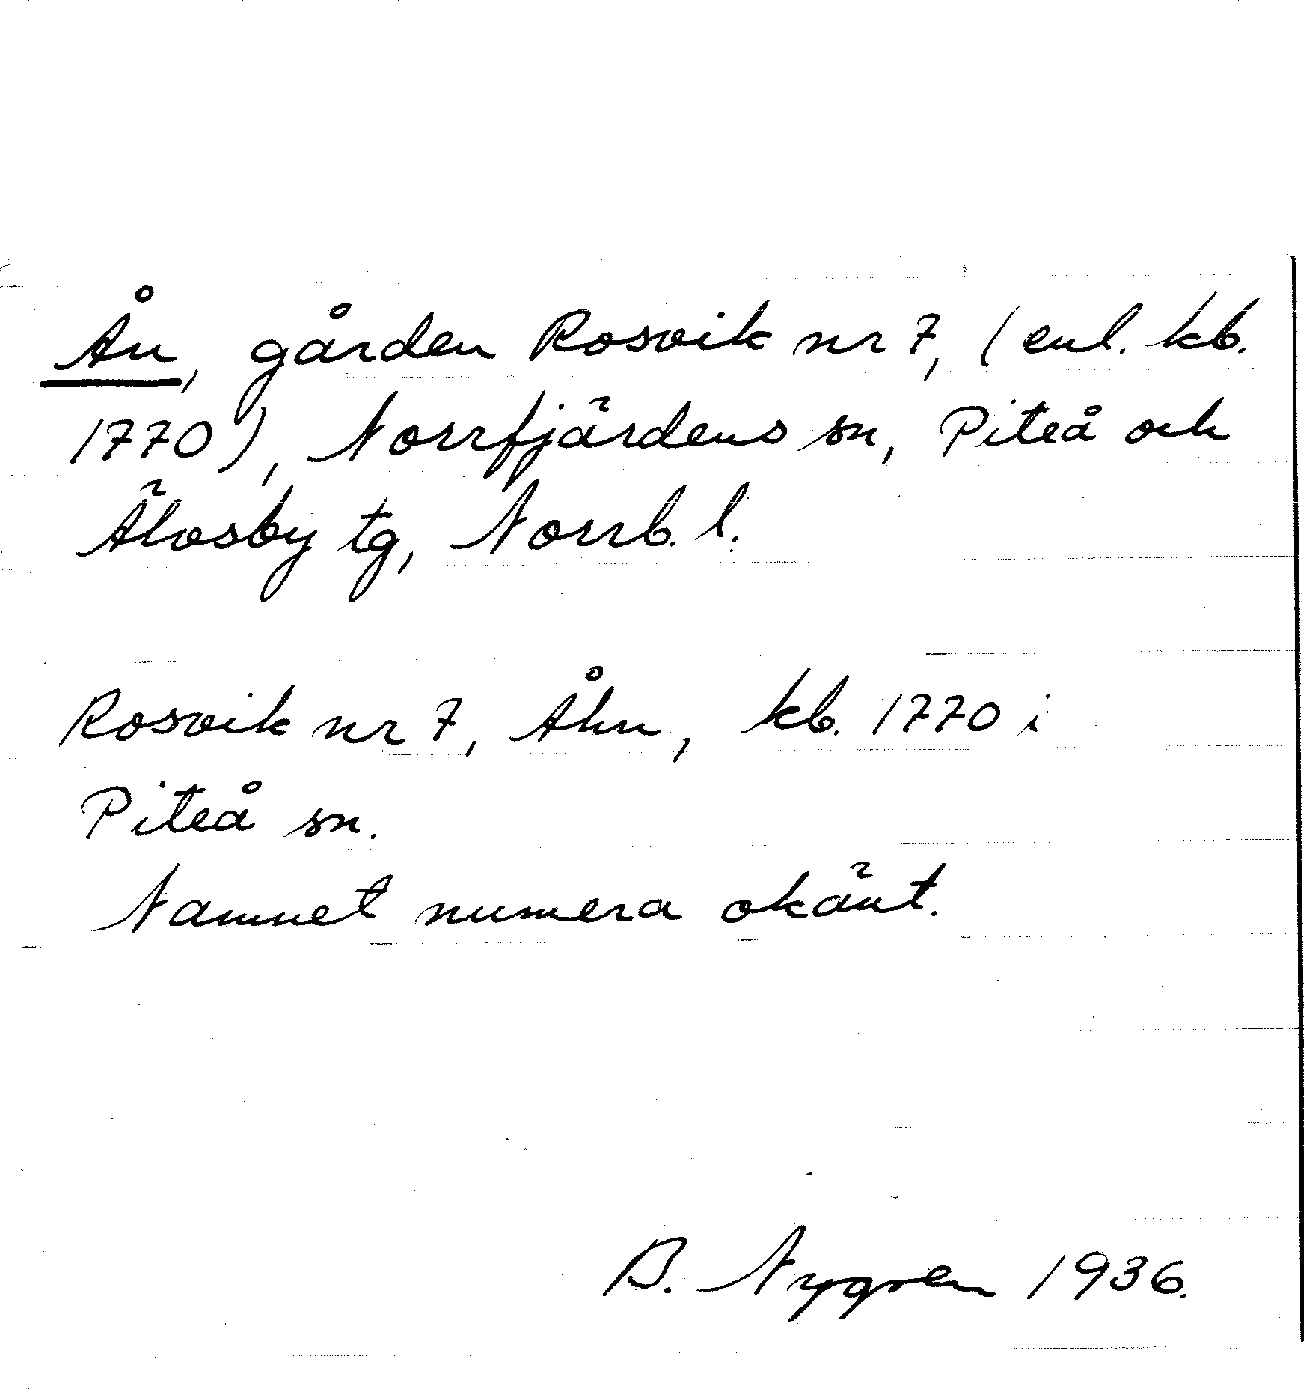 Ån, gården Rosvik nr 7, (enl. kb.
1770), Norrfjärdens sn, Piteå och
Älvsby tg, Norrb. l.
Rosvik nr 7, Åhn, kb. 1770 i
Piteå sn.
Namnet numera okänt.
B. Nygren 1936.